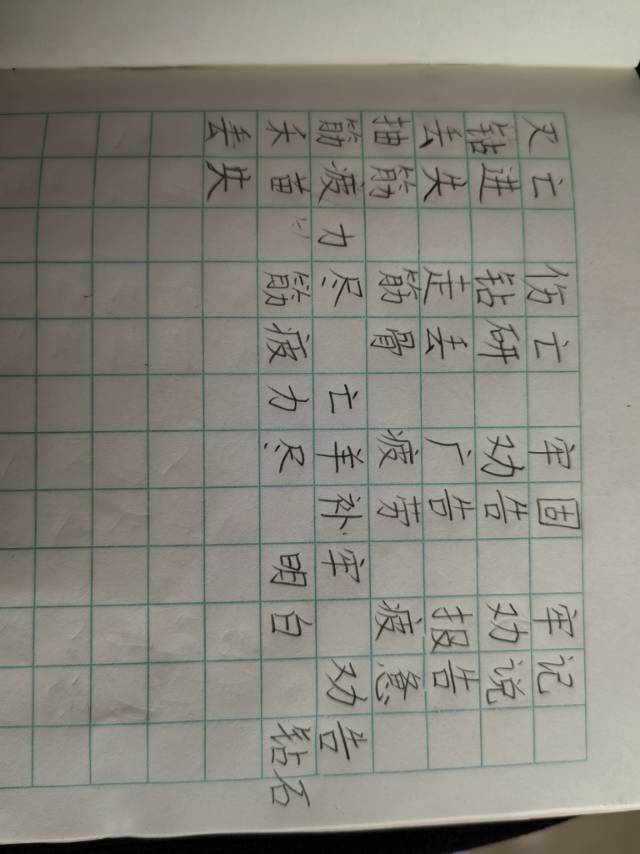 亡 伤亡 牢固 牢记
钻进 钻研 劝告 劝说
丢失 走去 广告 报告
抽筋 筋骨 疲劳 疲惫
筋疲力尽 亡羊补牢 劝告
禾苗 筋疲力尽 明白 钻石
丢失